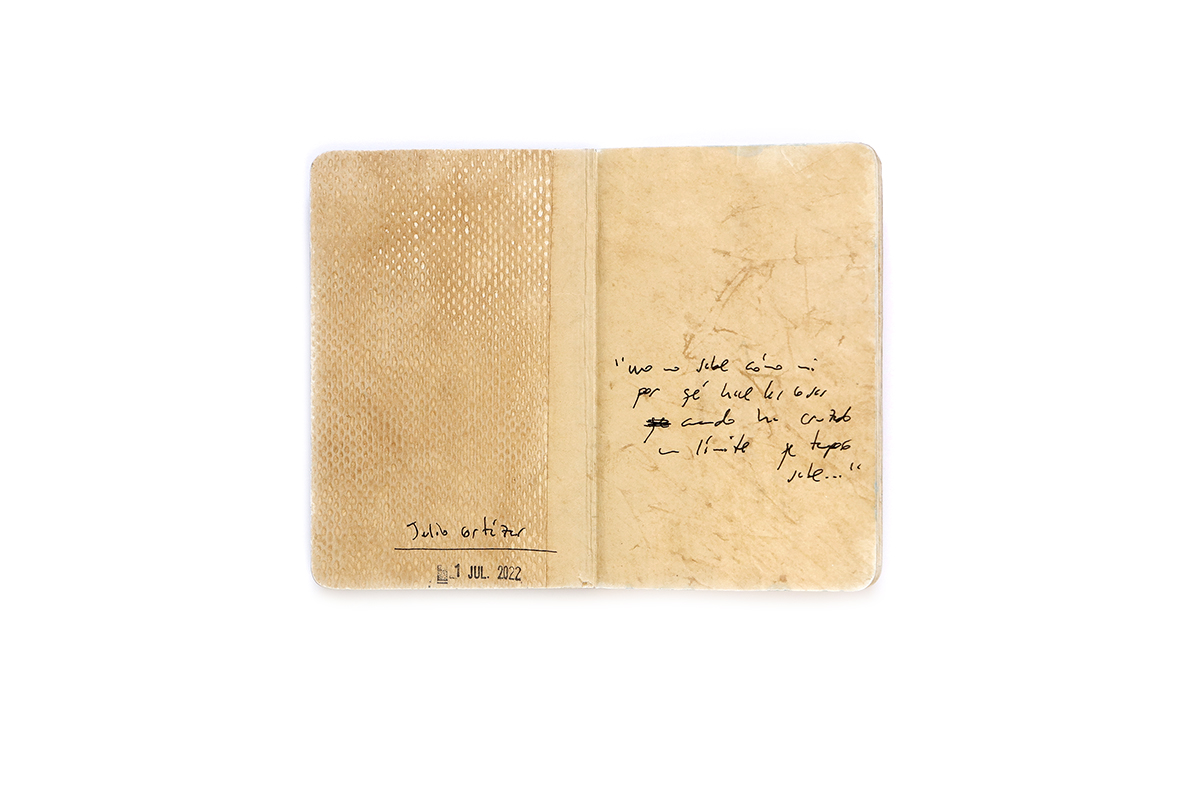 Julio Cortázar
1 JUL. 2022
"uno no sabe cómo ni
por qé hace las cosas
cuando ha cruzado
un límite qe tampoco
sabe..."